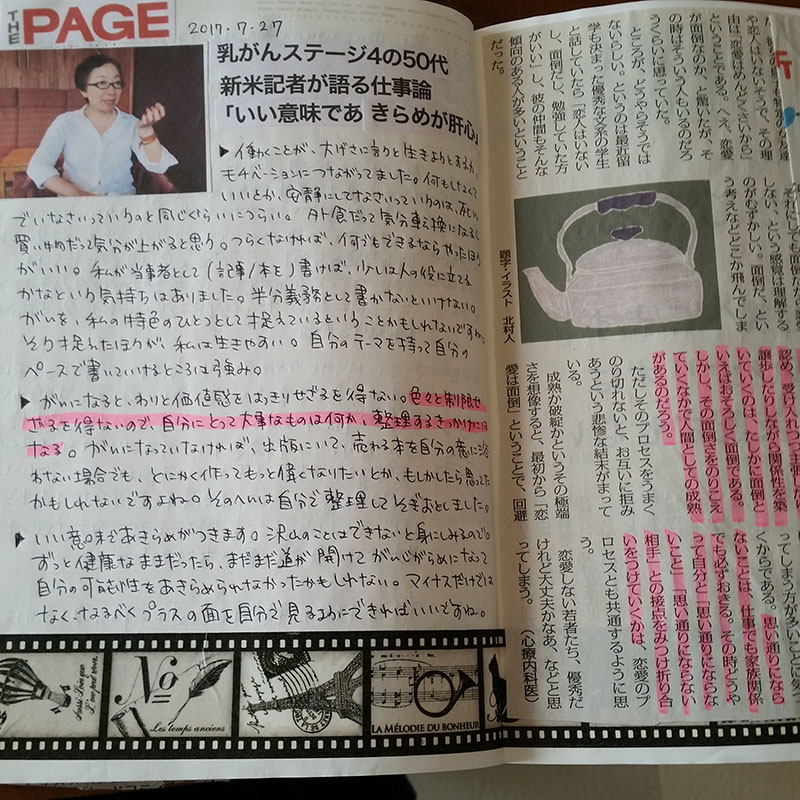 THE PAGE
2017.7.27
乳がんステージ4の50代
新米記者が語る仕事論
「いい意味であきらめが肝心」
▶働くことが、大げさに言うと生きようとする
モチベーションにつながってました。何もしなくて
いいとか、安静にしてなさいっていうのは、死
でいなさいっていうのと同じぐらいにつらい。外食だって気分転換になるし
買い物だって気分が上がると思う。つらくなければ、何でもできるならやったほう
がいい。私が当事者として(記事/本を)書けば、少しは人の役に立てる
かなという気持ちはありました。半分義務として書かないといけない。
がんを、私の特色のひとつとして捉えているということかもしれないですね。
そう捉えたほうが、私は生きやすい。自分のテーマを持って自分の
ペースで書いていけるところは強み。
▶がんになると、わりと価値感をはっきりせざるを得ない。色々と制限せ
ざるを得ないので、自分にとって大事なものは何か、整理するきっかけには
なる。がんになっていなければ、出版にいて、売れる本を自分の意に沿
わない場合でも、とにかく作ってもっと偉くなりたいとか、もしかしたら思ってた
かもしれないですよね。そのへんは自分で整理してそぎおとしました。
▶いい意味であきらめがつきます。沢山のことはできないと身にしみるので。
ずっと健康なままだったら、まだまだ道が開けてがんじがらめになって
自分の可能性をあきらめられなかったかもしれない。マイナスだけでは
なく、なるべくプラスの面を自分で見るようにできればいいですね。
Aussi loin que
Nº
Les temps anciens
LA MÉLODIE DU BONHEUR
や恋人はいないそうで、その理
由は「恋愛はめんどくさいから」
ということである。へえ、恋愛
が面倒なのか、と驚いたが、そ
の時はそういう人もいるのだろ
うくらいに思っていた。
ところが、どうやらそうでは
ないらしい。というのは最近留
学も決まった優秀な文系の学生
と話していたら「恋人はいない
し、面倒だし、勉強していた方
がいい」し、彼の仲間もそんな
傾向のある人が多いということ
だった。
それにしても面倒だから恋愛
しない、という感覚は理解する
のがむずかしい。面倒だ、とい
う考えなどどこか飛んでしま
題字・イラスト 北村人
認め、受け入れつつ主張したり
譲歩したりしながら関係性を築
いていくのは、たしかに面倒と
いえばおそろしく面倒である。
しかし、その面倒さをのりこえ
ていくなかで人間としての成熟
があるのだろう。
ただしそのプロセスをうまく
のり切れないと、お互いに拒み
あうという悲惨な結末がまって
いる。
成熟か破綻かというその極端
さを想像すると、最初から「恋
愛は面倒」ということで、回避
ってしまう方が多いことになっ
くからである。思い通りになら
ないことは、仕事でも家族関係
でも必ずおきる。その時どうや
って自分と「思い通りにならな
いこと」「思い通りにならない
相手」との接点をみつけ折り合
いをつけていくかは、恋愛のプ
ロセスとも共通するように思
う。
恋愛しない若者たち、優秀だ
けれど大丈夫かなあ、などと思
ってしまう。（心療内科医）